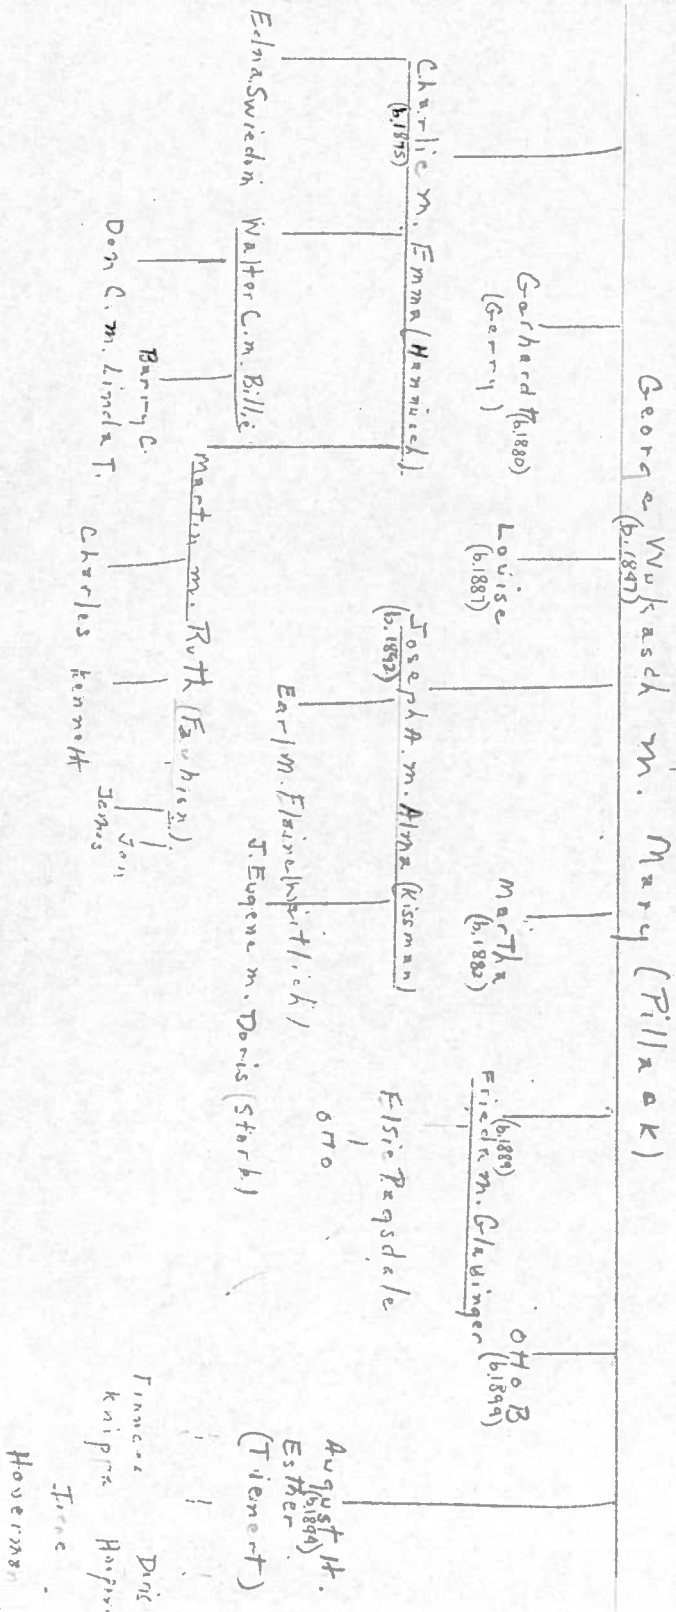 George Wukasch m. Mary (Pillack)
(b.1847)
Charlie m. Emma (Hannusch)
(b.1875)
Gerhardt (b.1880)
(Gerry)
Louise
(b.1887)
Joseph A. m. Alma (Kissman)
(b.1892)
Martha
(b.1882)
(b.1889)
Frieda m. Glasinger
Otto B
(b.1899)
August H.
(b.1894)
Esther
(Tienert)
Edna Swiedom
Walter C. m. Billie
Martin m. Ruth
Earl m. Elaine
J. Eugene m. Doris (Stark)
Elsie Ragsdale
Otto
Don C. m. Linda T.
Barry C.
Charles
Kenneth
James
Jon
Frances
Knippa
Doris
Irene